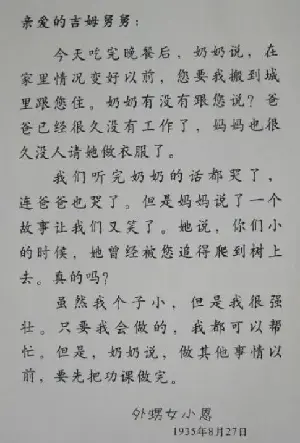 亲爱的吉姆舅舅：
今天吃完晚餐后，奶奶说，在
家里情况变好以前，您要我搬到城
里跟您住。奶奶有没有跟您说？爸
爸已经很久没有工作了，妈妈也很
久没人请她做衣服了。
我们听完奶奶的话都哭了，
连爸爸也哭了。但是妈妈说了一个
故事让我们又笑了。她说，你们小
的时候，她曾经被您追得爬到树上
去。真的吗？
虽然我个子小，但是我很强
壮。只要我会做的，我都可以帮
忙。但是，奶奶说，做其他事情以
前，要先把功课做完。
外甥女小恩
1935年8月27日